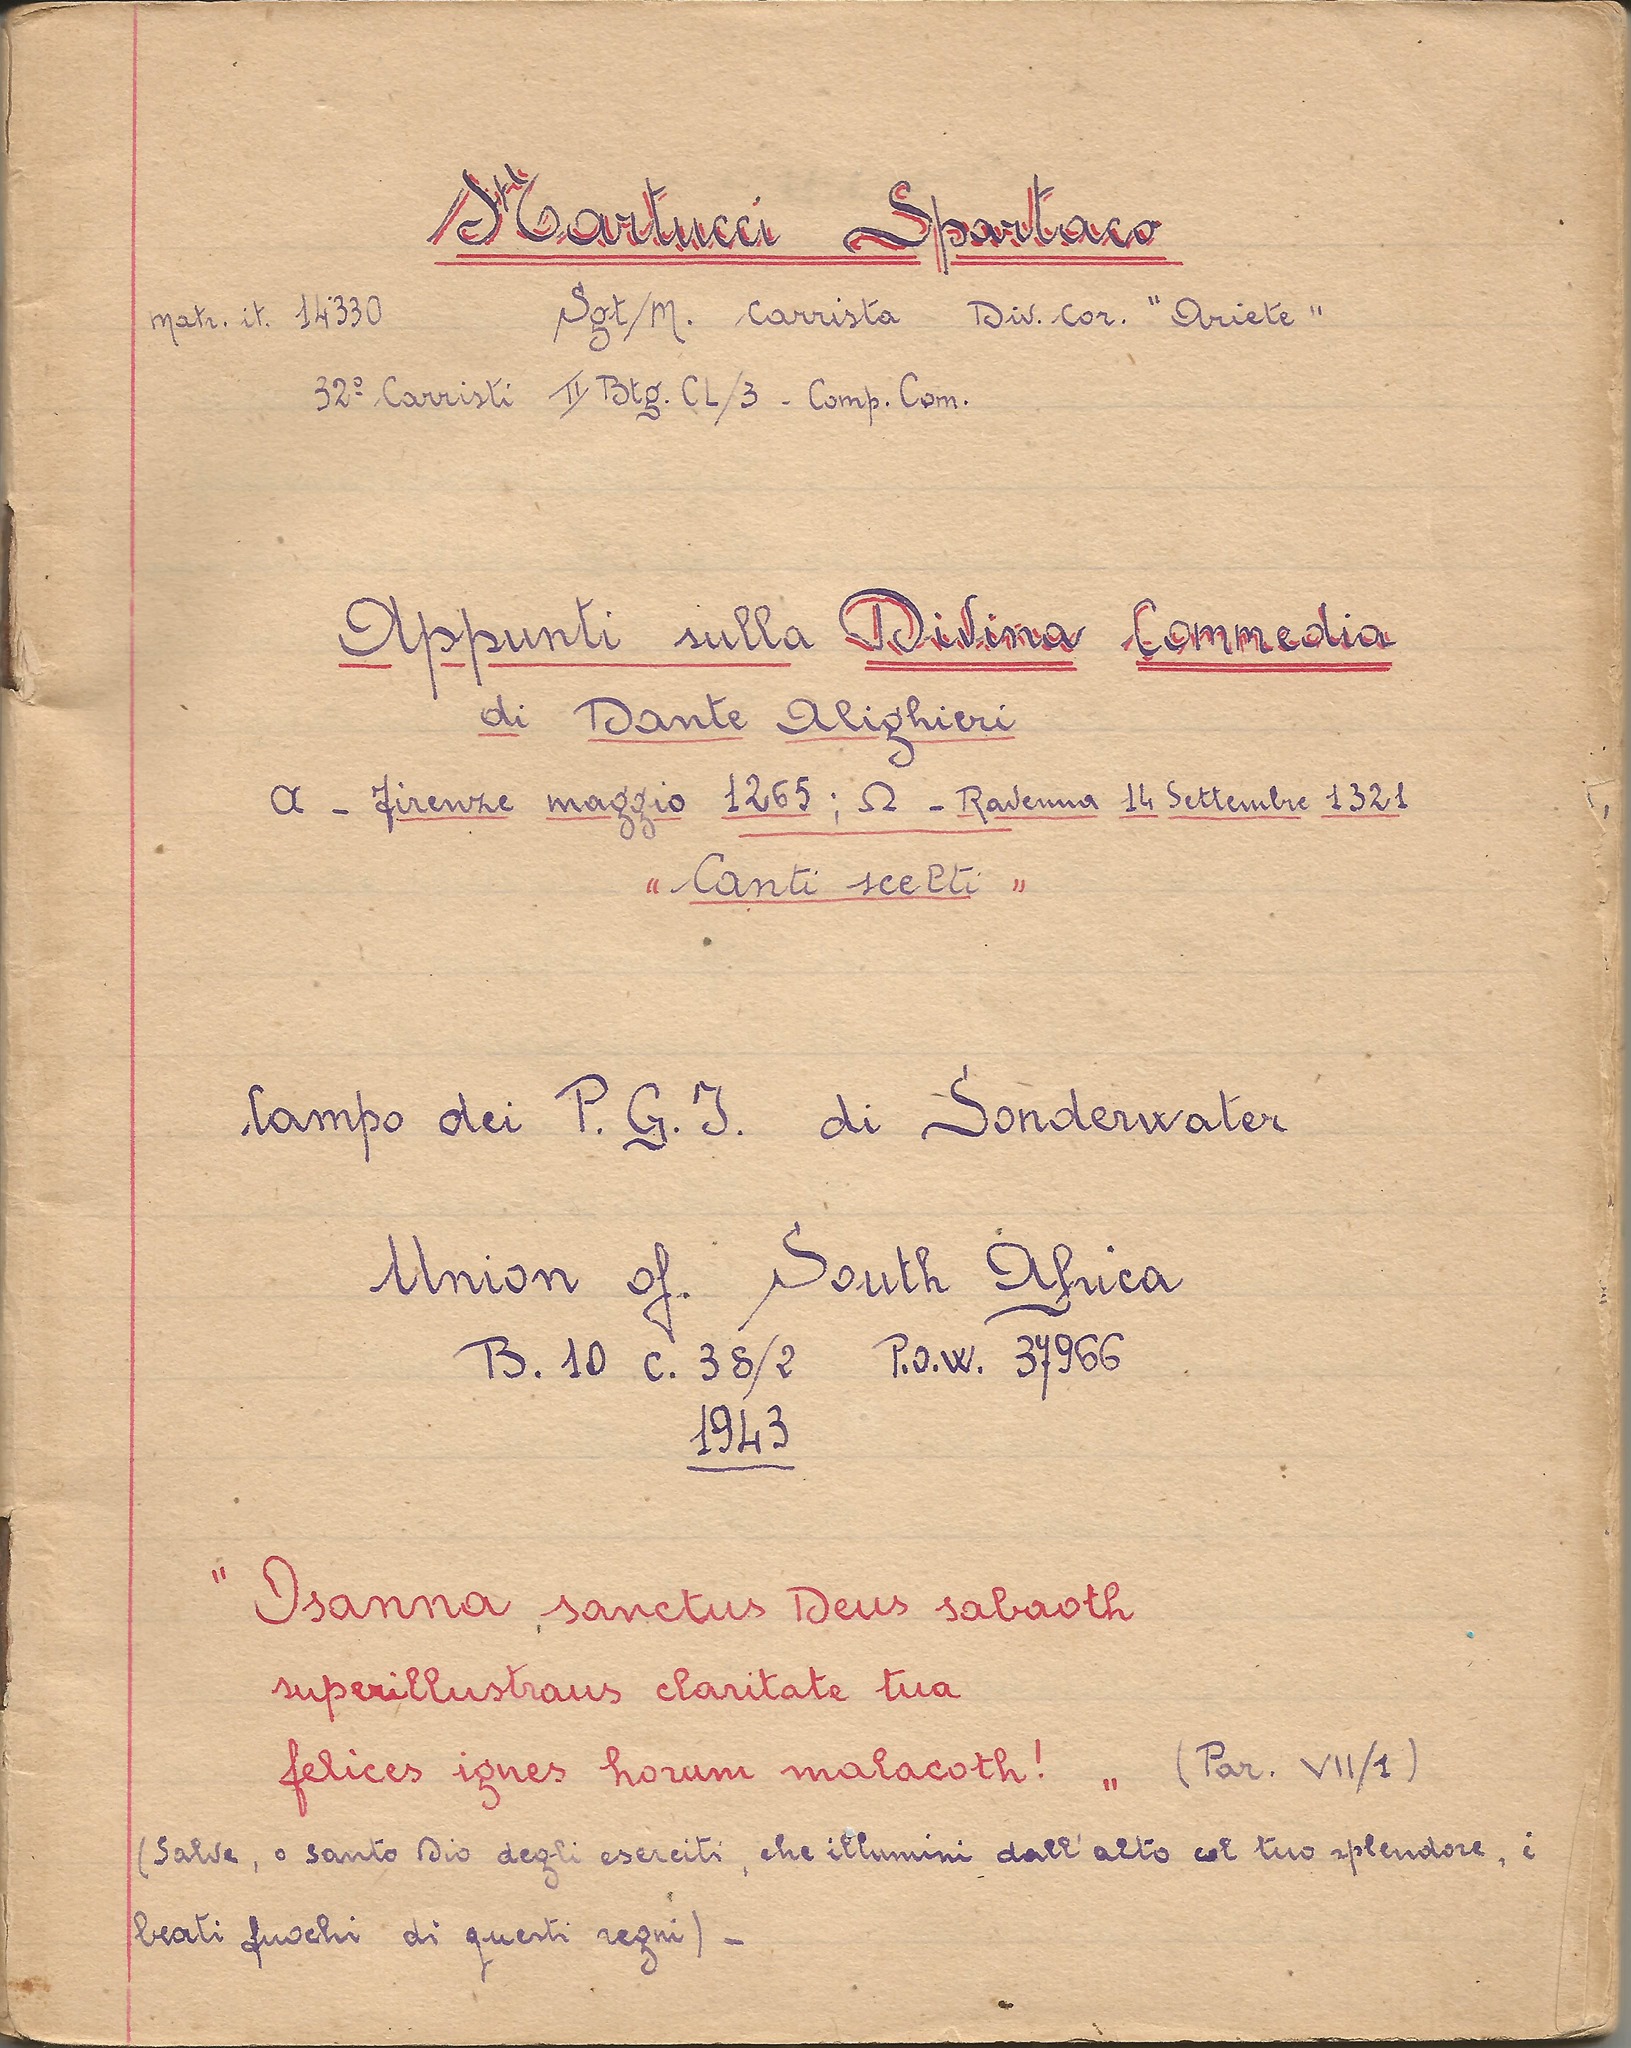 Martucci Spartaco
matr. it. 14330 Sgt/M. carrista Div. Cor. "Ariete"
32° Carristi II Btg. CL/3 - Comp. Com.
Appunti sulla Divina Commedia
di Dante Alighieri
α - Firenze maggio 1265; Ω - Ravenna 14 Settembre 1321
"Canti scelti"
Campo dei P.G.I. di Sonderwater
Union of. South Africa
B. 10 c. 38/2 P.O.W. 37966
1943
"Osanna sanctus Deus sabaoth
superillustrans claritate tua
felices ignes horum malacoth!" (Par. VII/1)
(Salve, o santo Dio degli eserciti, che illumini dall'alto col tuo splendore, i
beati fuochi di questi regni) -